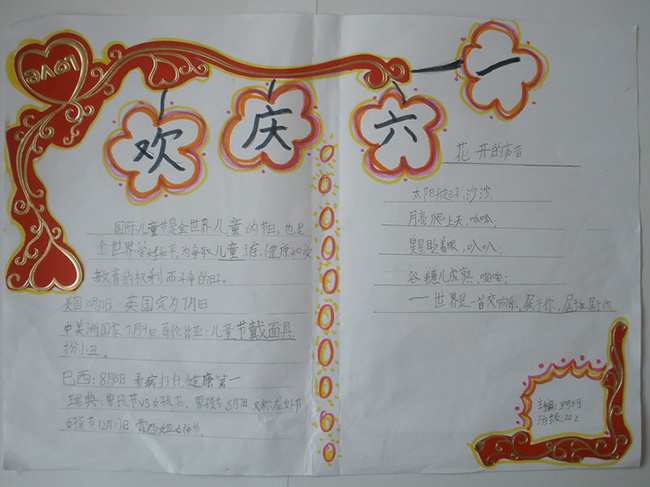 love
欢 庆 六 一
国际儿童节是全世界儿童的节日,也是
全世界爱好和平,为争取儿童生存、健康和受
教育的权利而斗争的日子。
英国定为7月14日
中美洲国家7月4日 哥伦比亚:儿童节戴面具
扮小丑。
巴西:8月15日 看病打针健康第一
瑞典:男孩节VS女孩节、男孩节8月7日 又称龙虾节
女孩节12月13日 露西娅女神节
花开的声音
太阳升起了,沙沙,
月亮爬上天,呱呱,
星星眨着眼,叭叭,
谷穗儿成熟,啪啪,
世界是一首交响乐,属于你,属于
主编:
班级:202